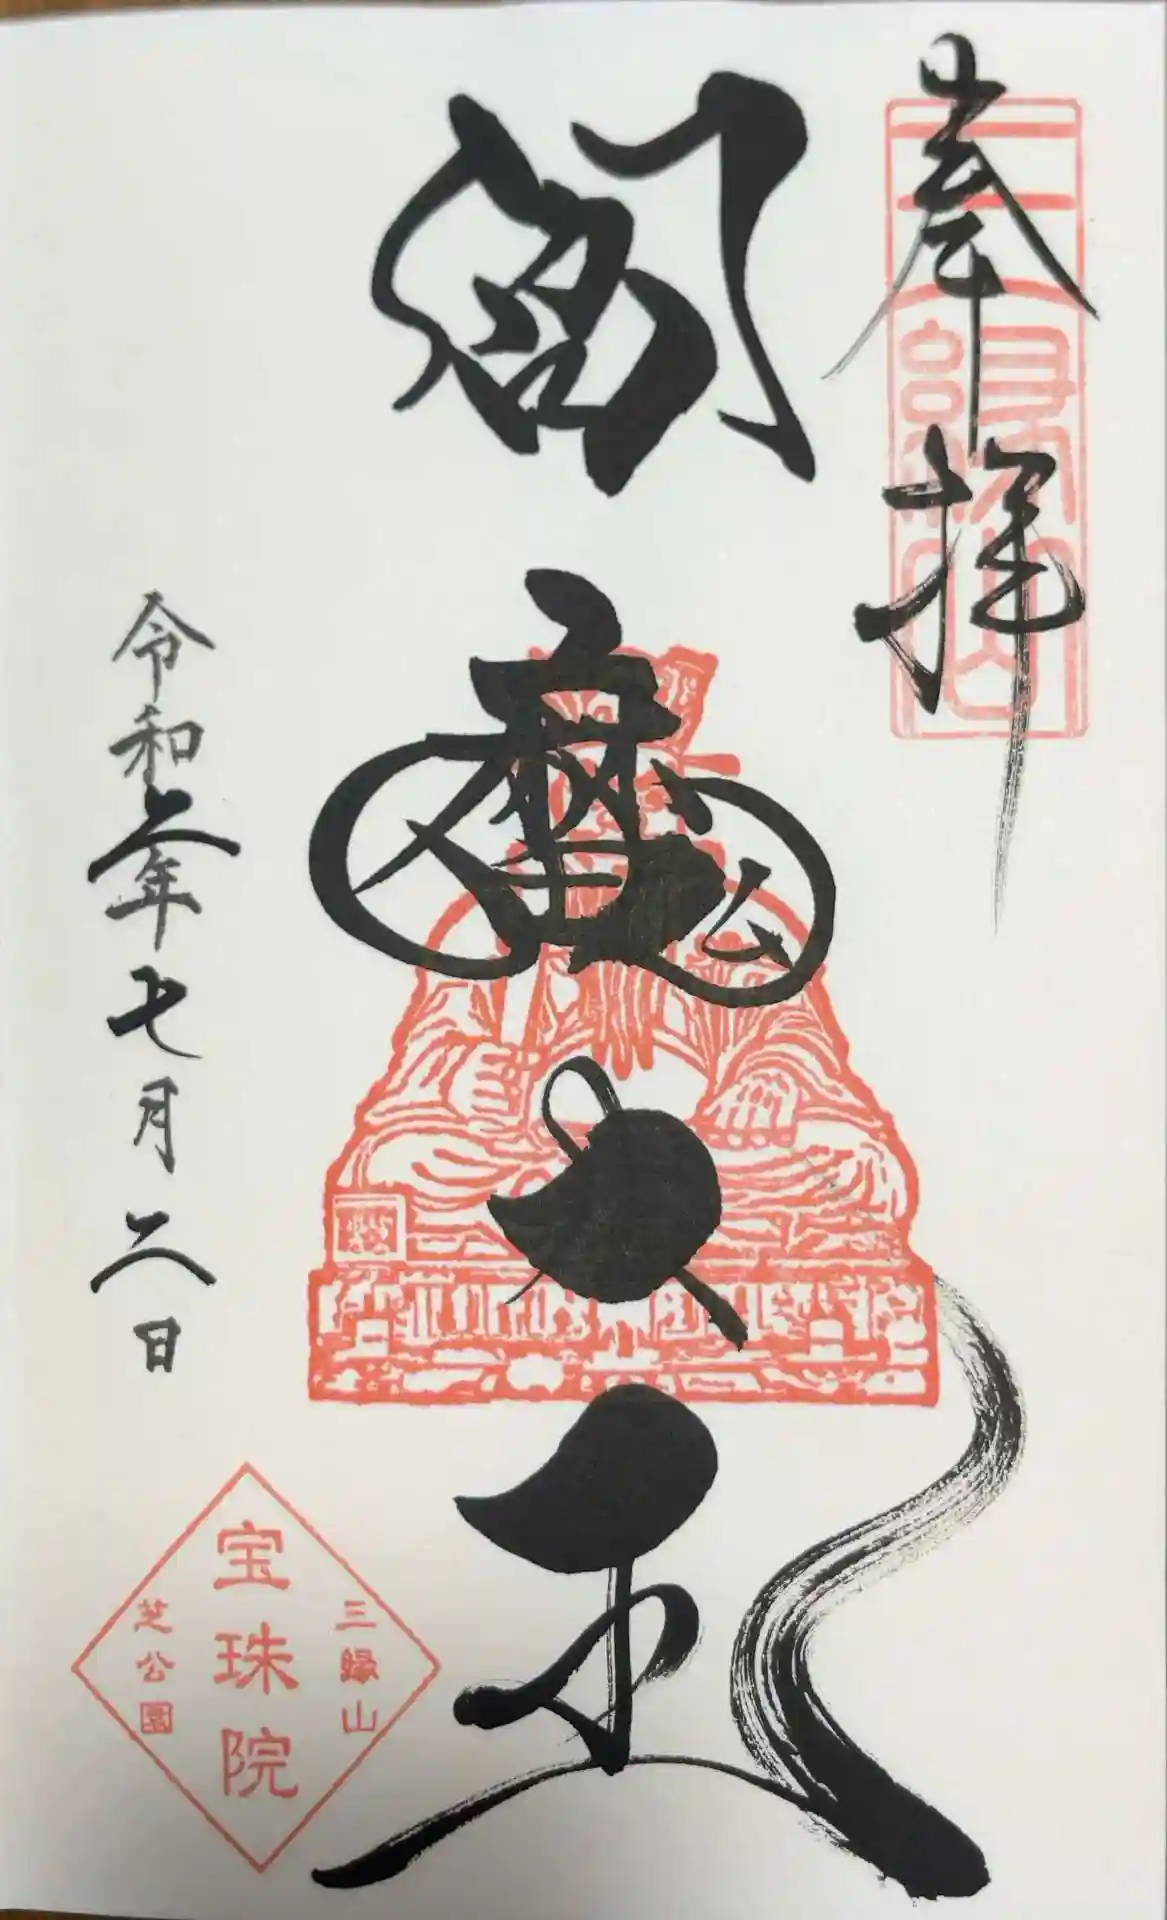 奉拝
三縁山
閻魔大王
令和二年七月二日
三縁山
宝珠院
芝公園